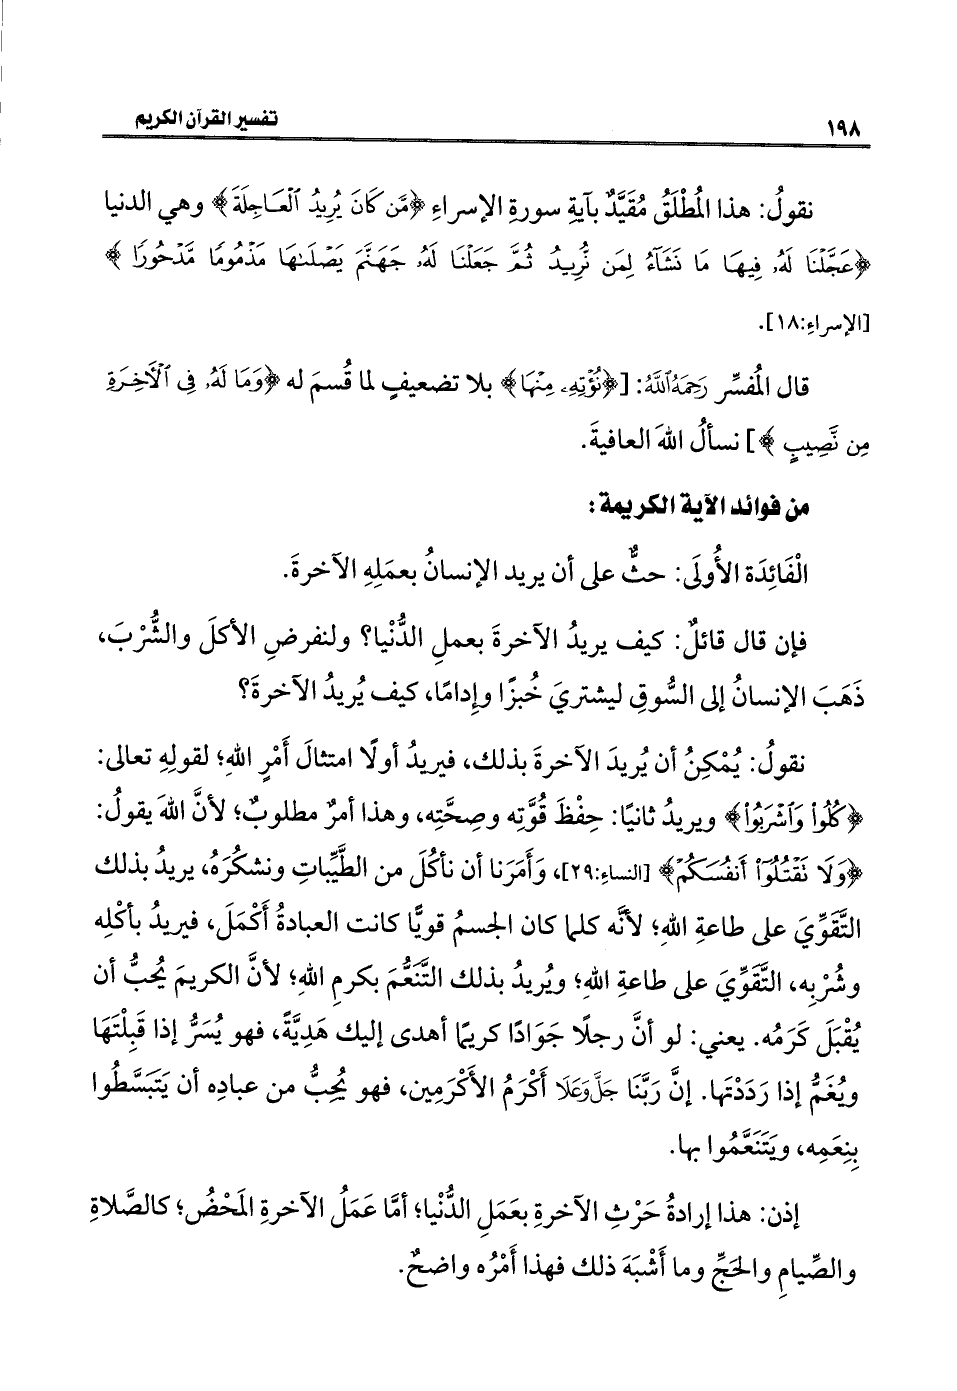 ١٩٨ تفسير القرآن الكريم
نقولُ: هذا المُطْلَقُ مُقَيَّدٌ بآيةِ سورةِ الإسراءِ ﴿مَّن كَانَ يُرِيدُ ٱلْعَاجِلَةَ﴾ وهي الدنيا
﴿عَجَّلْنَا لَهُۥ فِيهَا مَا نَشَآءُ لِمَن نُّرِيدُ ثُمَّ جَعَلْنَا لَهُۥ جَهَنَّمَ يَصْلَىٰهَا مَذْمُومًا مَّدْحُورًا﴾
[الإسراء:١٨].
قال المُفسِّر رَحِمَهُ ٱللَّهُ: [﴿نُؤْتِهِۦ مِنْهَا﴾ بلا تضعيفٍ لما قُسمَ له ﴿وَمَا لَهُۥ فِى ٱلْأَخِرَةِ
مِن نَّصِيبٍ﴾] نسألُ اللهَ العافيةَ.
من فوائد الآية الكريمة:
الْفَائِدَة الأُولَى: حثٌّ على أن يريد الإنسانُ بعمَلِهِ الآخرةَ.
فإن قال قائلٌ: كيف يريدُ الآخرةَ بعملِ الدُّنْيا؟ ولنفرضِ الأكلَ والشُّرْبَ،
ذَهَبَ الإنسانُ إلى السُّوقِ ليشتريَ خُبزًا وإدامًا، كيف يُريدُ الآخرةَ؟
نقولُ: يُمْكِنُ أن يُريدَ الآخرةَ بذلك، فيريدُ أولًا امتثالَ أَمْرِ اللهِ؛ لقولِهِ تعالى:
﴿كُلُوا۟ وَٱشْرَبُوا۟﴾ ويريدُ ثانيًا: حِفْظَ قُوَّتِه وصِحَّتِه، وهذا أمرٌ مطلوبٌ؛ لأنَّ اللهَ يقولُ:
﴿وَلَا تَقْتُلُوٓا۟ أَنفُسَكُمْ﴾ [النساء:٢٩]، وَأَمَرَنا أن نأكُلَ من الطَّيِّباتِ ونشكُرَهُ، يريدُ بذلك
التَّقَوِّيَ على طاعةِ اللهِ؛ لأنَّه كلما كان الجسمُ قويًّا كانت العبادةُ أَكْمَلَ، فيريدُ بأكْلِه
وشُرْبِه، التَّقَوِّيَ على طاعةِ اللهِ؛ ويُريدُ بذلك التَّنَعُّمَ بكرمِ اللهِ؛ لأنَّ الكريمَ يُحِبُّ أن
يُقْبَلَ كَرَمُه. يعني: لو أنَّ رجلًا جَوَادًا كريمًا أهدى إليك هَدِيَّةً، فهو يُسَرُّ إذا قَبِلْتَهَا
ويُغَمُّ إذا رَدَدْتَها. إنَّ رَبَّنَا جَلَّ وَعَلَا أَكْرَمُ الأَكْرَمِين، فهو يُحِبُّ من عبادِه أن يَتَبَسَّطُوا
بِنِعَمِه، ويَتَنَعَّمُوا بها.
إذن: هذا إرادةُ حَرْثِ الآخرةِ بعَمَلِ الدُّنْيا؛ أمَّا عَمَلُ الآخرةِ المَحْضُ؛ كالصَّلاةِ
والصِّيامِ والحَجِّ وما أَشْبَهَ ذلك فهذا أَمْرُه واضحٌ.